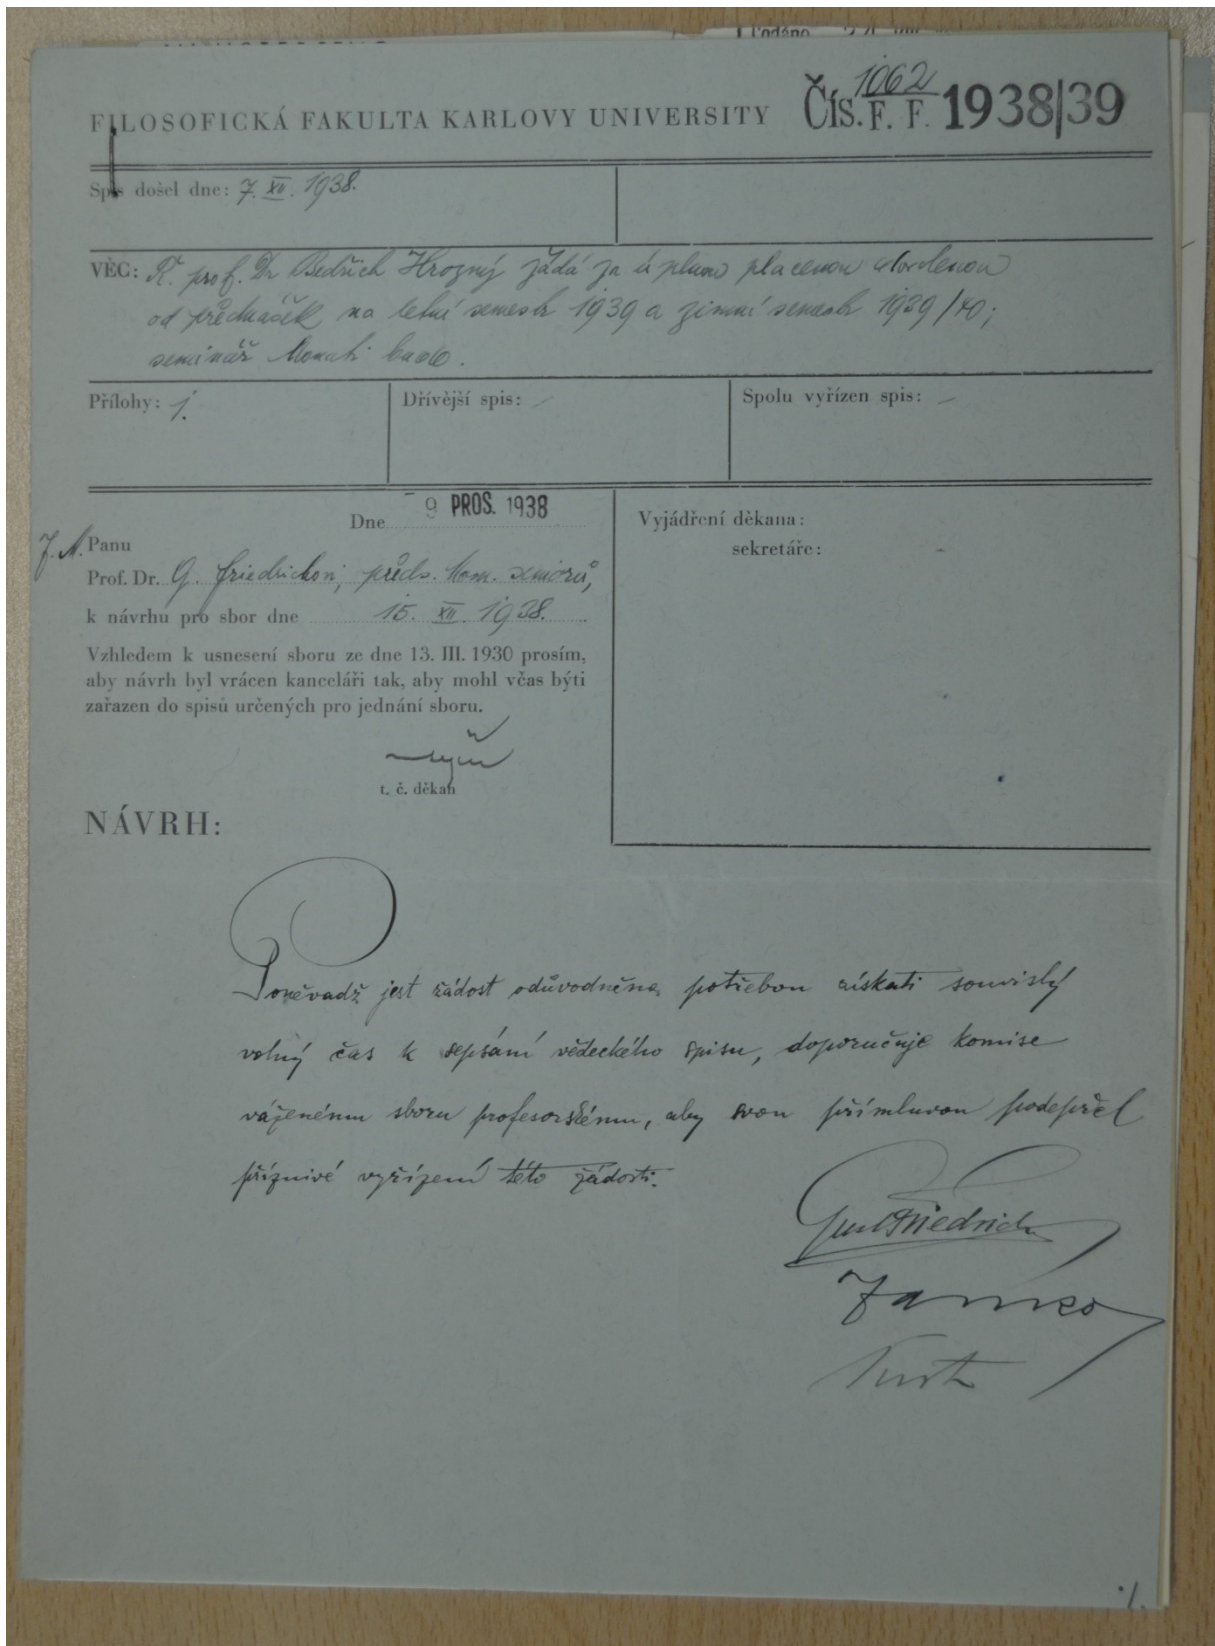 1062
FILOSOFICKÁ FAKULTA KARLOVY UNIVERSITY ČÍS. F. F. 1938/39
Spis došel dne: 7. XII. 1938.
VĚC: Ř. prof. Dr Bedřich Hrozný žádá za úplnou placenou dovolenou
od přednášek na letní semestr 1939 a zimní semestr 1939/40;
seminář konati bude.
Přílohy: 1. Dřívější spis: — Spolu vyřízen spis: —
Dne 9 PROS. 1938
Panu
Prof. Dr. G. Friedrichovi, předs. kom. seniorů,
k návrhu pro sbor dne 15. XII. 1938.
Vzhledem k usnesení sboru ze dne 13. III. 1930 prosím,
aby návrh byl vrácen kanceláři tak, aby mohl včas býti
zařazen do spisů určených pro jednání sboru.
t. č. děkan
Vyjádření děkana:
sekretáře:
NÁVRH:
Poněvadž jest žádost odůvodněna potřebou získati souvislý
volný čas k sepsání vědeckého spisu, doporučuje komise
váženému sboru profesorskému, aby svou přímluvou podepřel
příznivé vyřízení této žádosti.
Gust Friedrich
Janko
./.